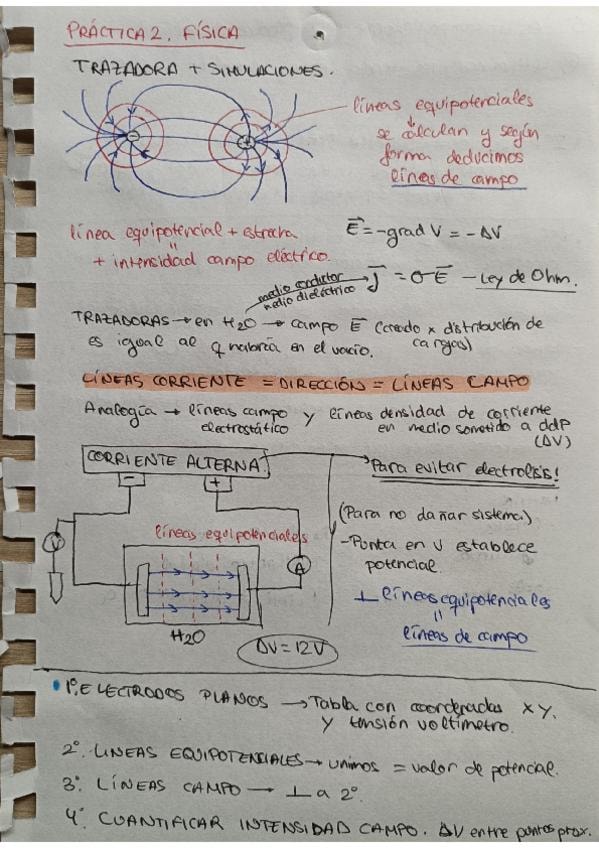 PRÁCTICA 2. FÍSICA
TRAZADORA + SIMULACIONES.
líneas equipotenciales
se calculan y según
forma deducimos
líneas de campo
- +
línea equipotencial + estrecha
"
+ intensidad campo eléctrico.
E = -grad V = -ΔV
medio conductor
medio dieléctrico
J = σE - Ley de Ohm.
TRAZADORAS → en H2O → campo E (creado x distribución de
es igual al q habría en el vacío. cargas)
LÍNEAS CORRIENTE = DIRECCIÓN = LÍNEAS CAMPO
Analogía → líneas campo y líneas densidad de corriente
electrostático en medio sometido a ddp
(ΔV)
CORRIENTE ALTERNA
- +
Para evitar electrolisis!
(Para no dañar sistema)
- Punta en V establece
potencial.
⊥ líneas equipotenciales
"
líneas de campo
líneas equipotenciales
V
A
H2O
ΔV = 12V
1º. ELECTRODOS PLANOS → Tabla con coordenadas X Y.
y tensión voltímetro.
2º. LINEAS EQUIPOTENCIALES → unimos = valor de potencial.
3º. LÍNEAS CAMPO → ⊥ a 2º.
4º. CUANTIFICAR INTENSIDAD CAMPO. ΔV entre puntos prox.